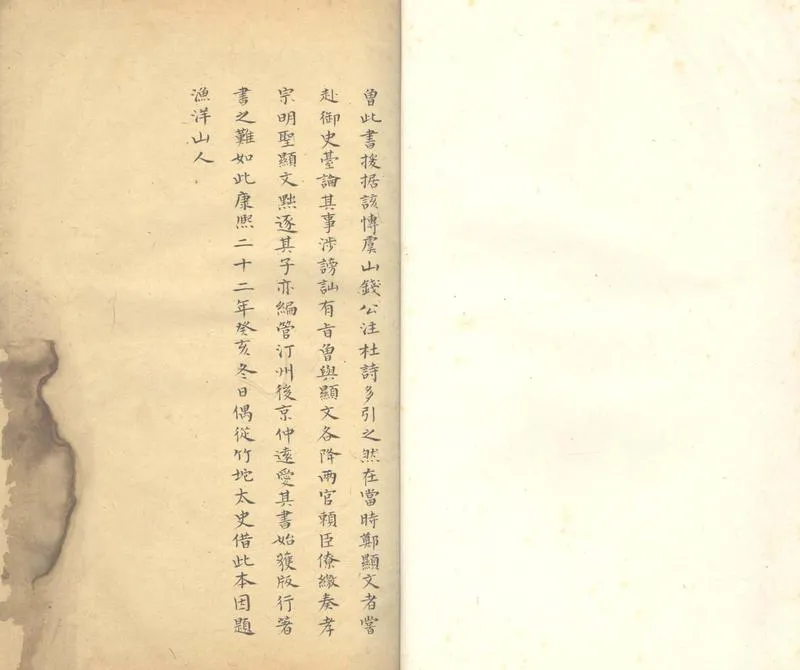 曾此書援据該愽虞山錢公注杜詩多引之然在當時鄭顯文者嘗
赴御史臺論其事涉謗訕有旨曾與顯文各降兩官賴臣僚繳奏孝
宗明聖顯文黜逐其子亦編管汀州後京仲遠愛其書始獲版行著
書之難如此康熙二十二年癸亥冬日偶從竹垞太史借此本因題
漁洋山人